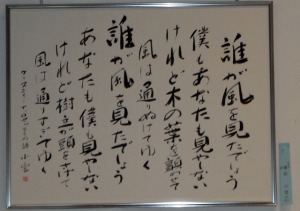 誰が風を見たでしょう
僕もあなたも見やしない
けれど木の葉を顫わせて
風は通りぬけてゆく
誰が風を見たでしょう
あなたも僕も見やしない
けれど樹立が頭をさげて
風は通りすぎてゆく